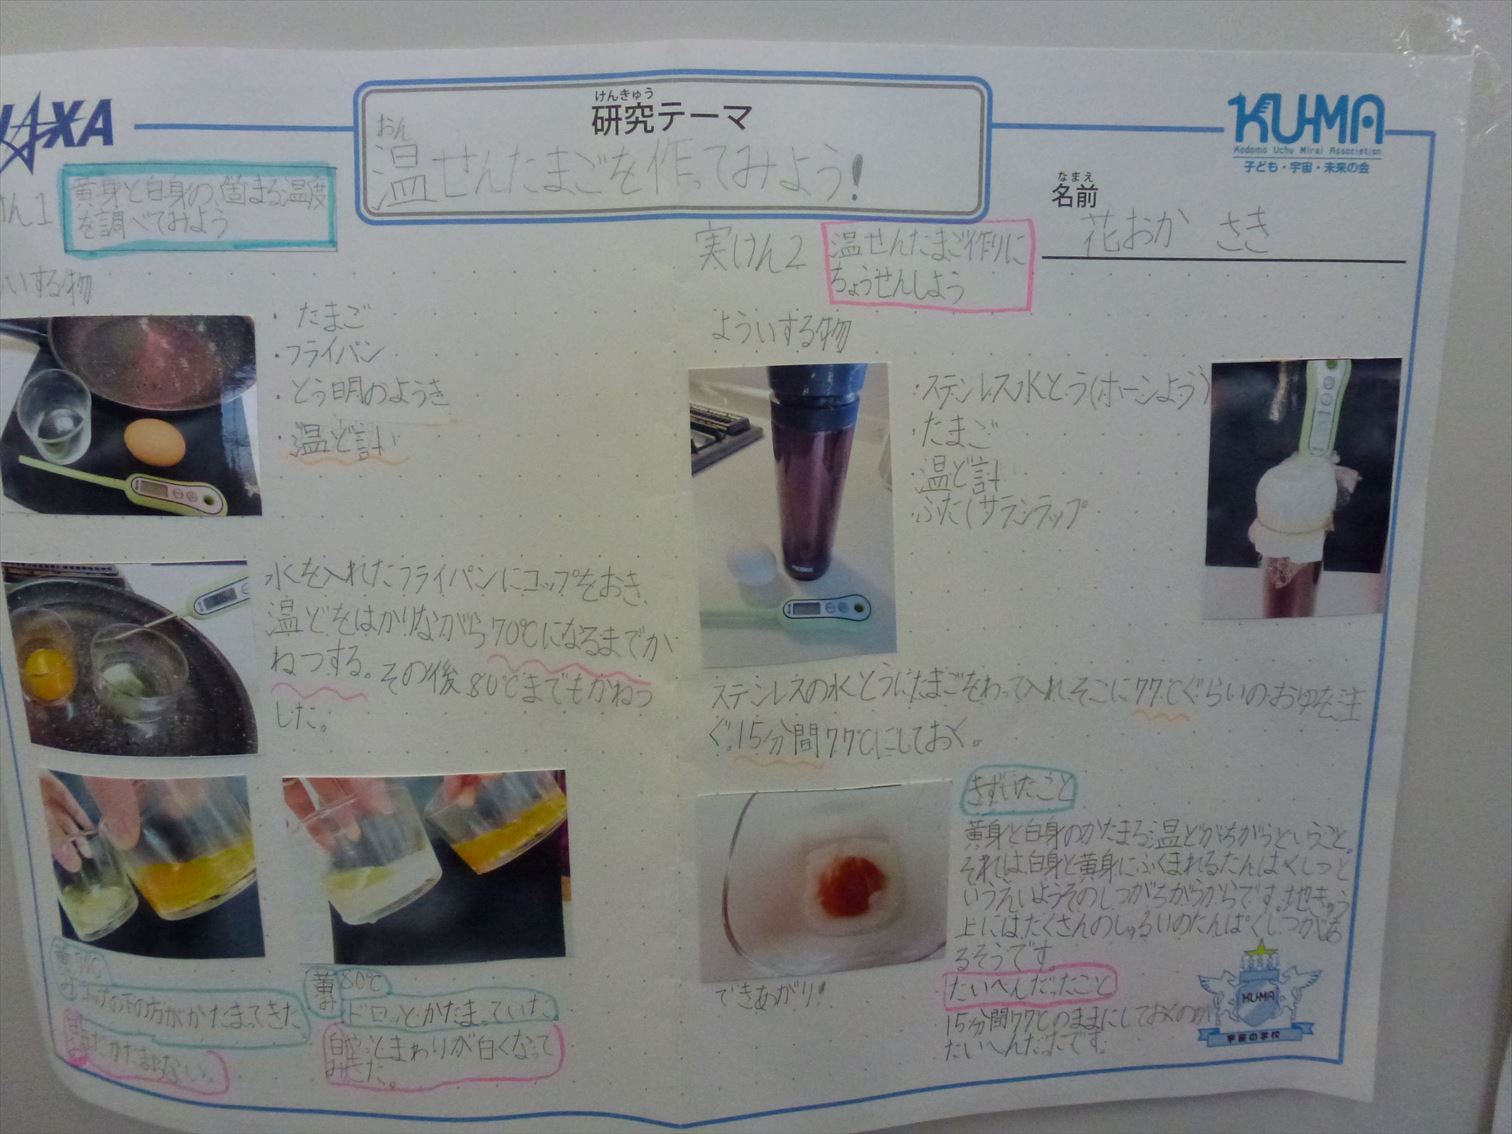 JAXA
けんきゅう
研究テーマ
おん
温せんたまごを作ってみよう!
KU-MA
Kodomo Uchu Mirai Association
子ども・宇宙・未来の会
なまえ
名前
花おか さき
けん1
黄身と白身の、固まる温度
を調べてみよう
いする物
・たまご
・フライパン
・とう明のようき
・温ど計
水を入れたフライパンにコップをおき、
温どをはかりながら70℃になるまでか
ねつする。その後80℃までもかねつ
した。
70℃
の下の方がかたまってきた
80℃
黄み
ドロッとかたまっていた
白み
やっとまわりが白くなって
きた。
実けん2
温せんたまご作りに
ちょうせんしよう
よういする物
・ステンレス水とう(ホーンよう)
・たまご
・温ど計
・ふた(サランラップ
ステンレスの水とうにたまごをわって入れ、そこに77℃ぐらいのおゆを注
ぐ。15分間77℃にしておく。
できあがり!
きずいたこと
黄身と白身のかたまる温どがちがうということ。
それは白身と黄身にふくまれるたんぱくしつと
いうえいようそのしつがちがうからです。地きゅう
上にはたくさんのしゅるいのたんぱくしつがあ
るそうです。
たいへんだったこと
15分間77℃のままにしておくのが
たいへんたったです。
KU-MA
宇宙の学校